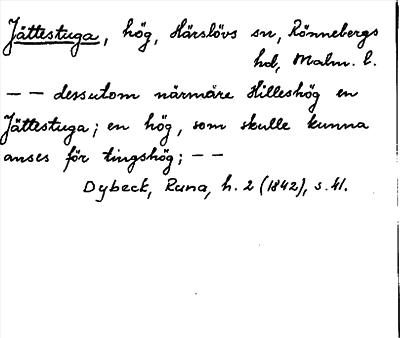 Jättestuga, hög, Härslövs sn, Rönnebergs
hd, Malm. l.
– – dessutom närmare Hilleshög en
Jättestuga; en hög, som skulle kunna
anses för tingshög; – –
Dybeck, Runa, h. 2 (1842), s. 41.